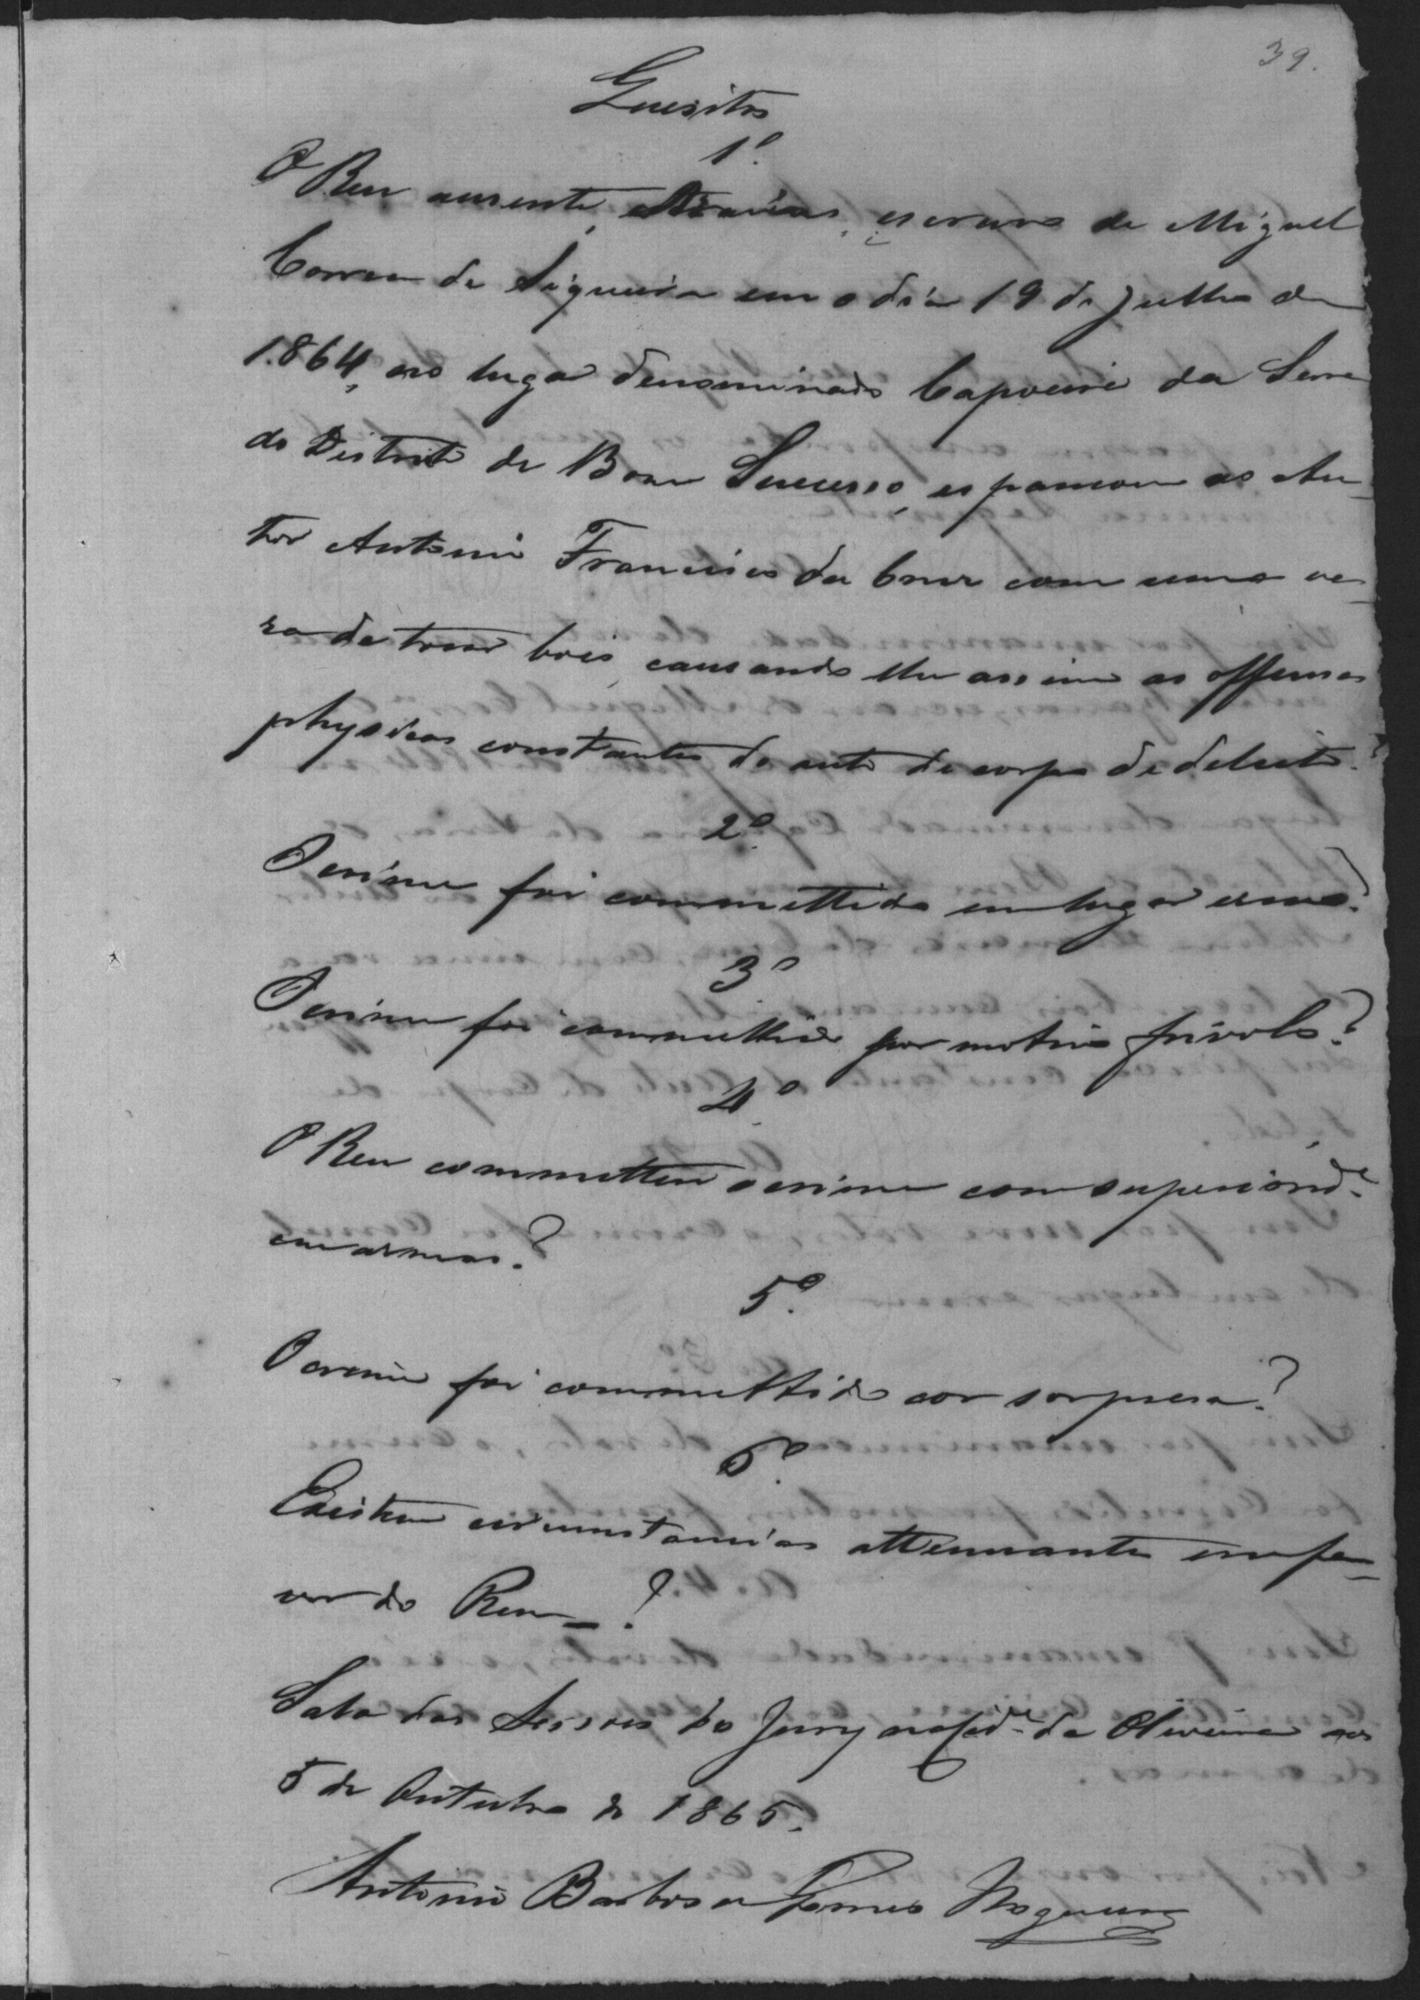 39.
Quesitos
1º
O Reu ausente, escravo de Miguel
Correa de Siqueira em o dia 19 de Julho de
1864, no lugar denominado Capoeira da Serra
do Districto de Bom Sucesso, espancou ao Au-
tor Antonio Francisco da Cruz com uma va-
ra de tocar bois, causando lhe assim as offensas
physicas constantes do auto de corpo de delicto?
2º
O crime foi committido em lugar ermo?
3º
O crime foi committido por motivo frivolo?
4º
O Reu committeu o crime com superiorid.e
em armas?
5º
O crime foi committido com sorpresa?
6º
Existem circumstancias attenuantes em fa-
vor do Reo?
Sala das Sessões do Jury na Cid.e da Oliveira aos
5 de Outubro de 1865.
Antonio Barbosa Gomes Nogueira